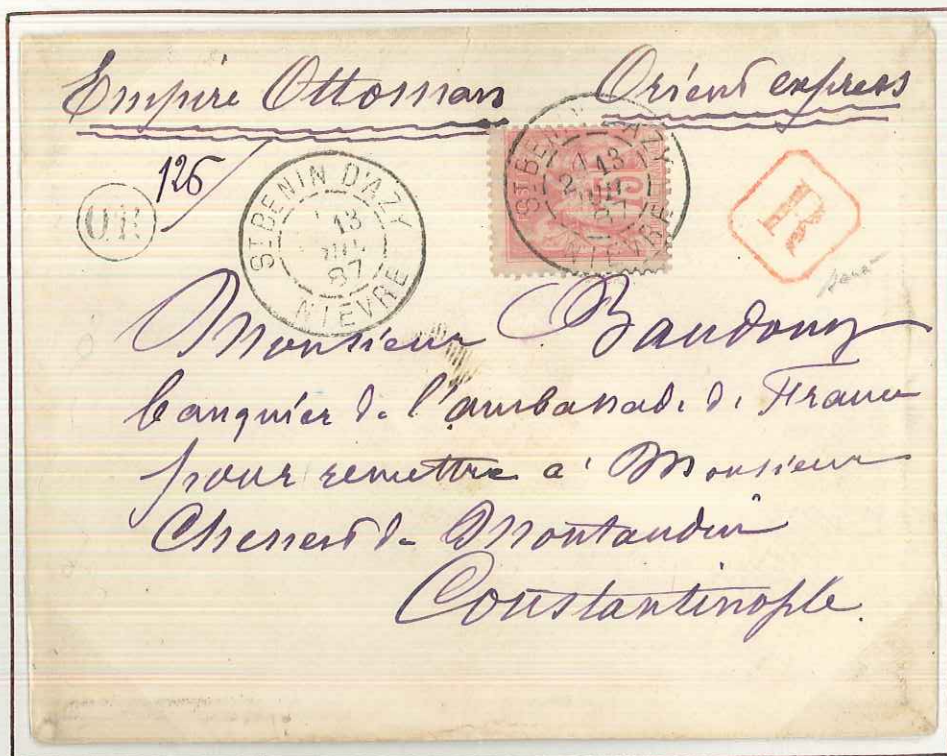 Empire Ottoman Orient express
126
OR
ST BENIN D'AZY
13
JUIL
87
NIEVRE
ST BENIN D'AZY
2
13
JUIL
87
NIEVRE
75
R
Monsieur Baudouy
banquier de l'ambassade de France
pour remettre a' Monsieur
de
Constantinople.